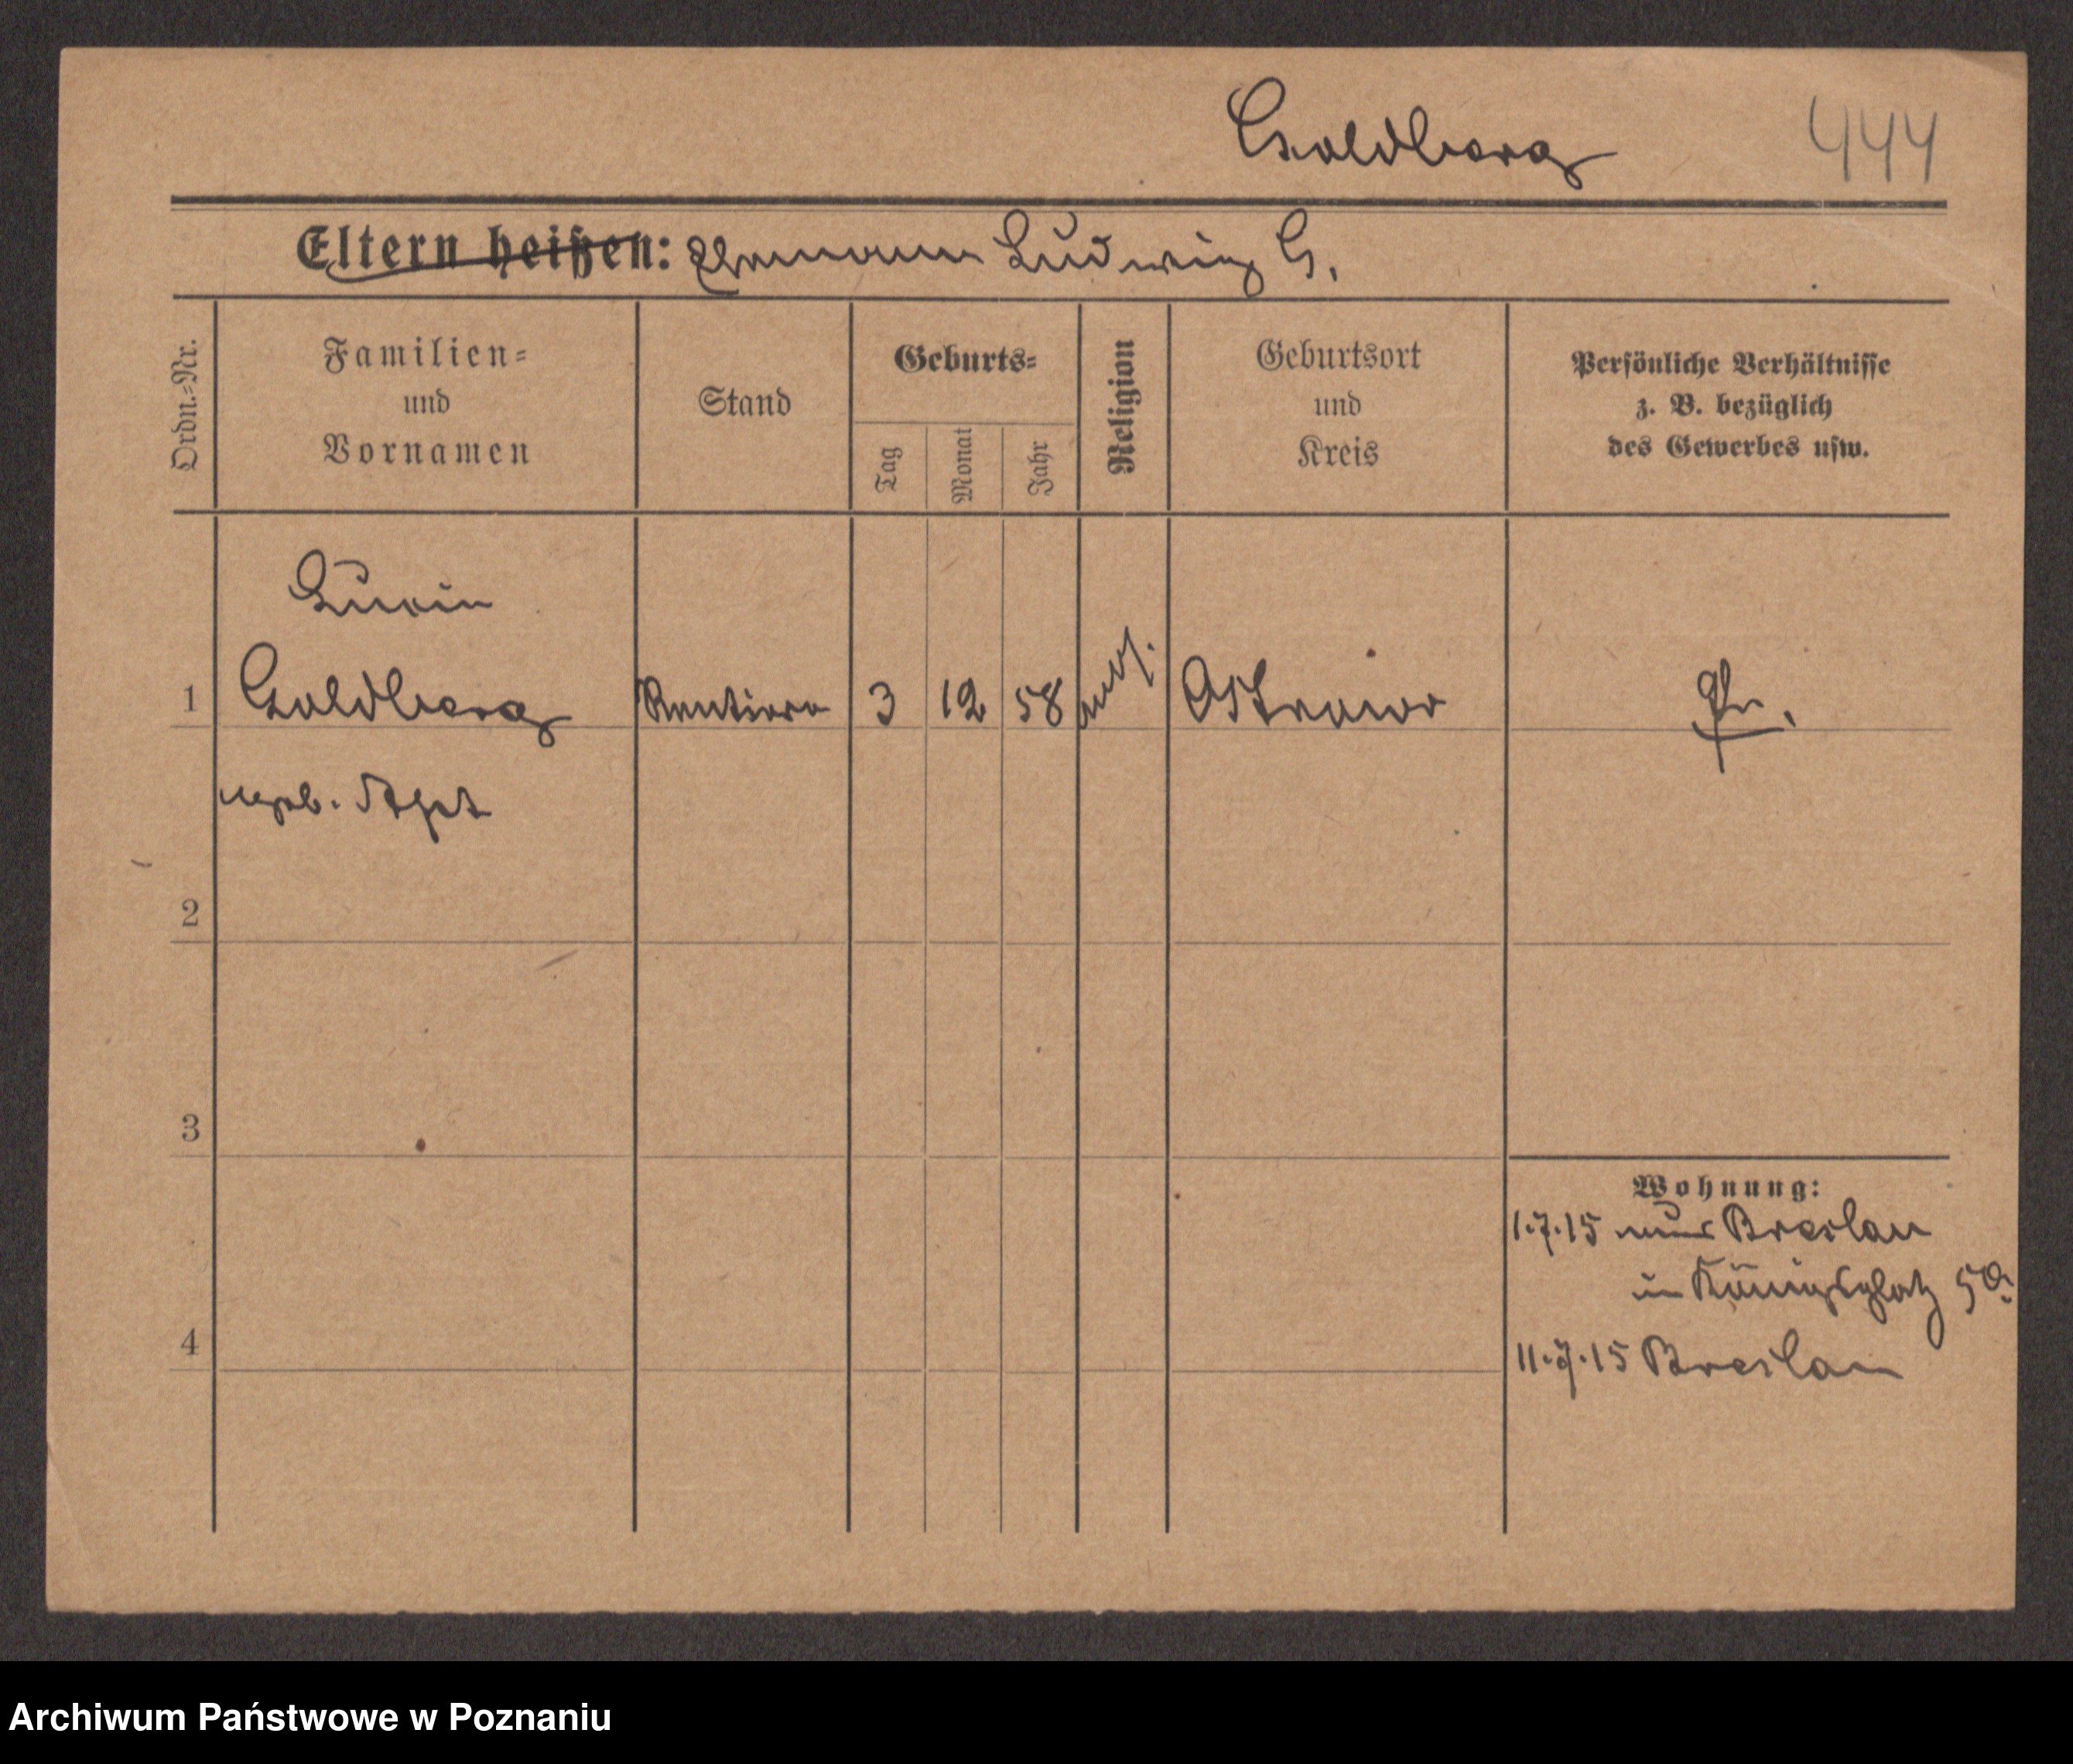 Goldberg 444
Eltern heißen: Ehemann Ludwig G.
Ordn.-Nr.
Familien-
und
Vornamen
Stand
Geburts-
Tag
Monat
Jahr
Religion
Geburtsort
und
Kreis
Persönliche Verhältnisse
z. B. bezüglich
des Gewerbes usw.
1
Goldberg Rentiere 3 12 58 mos. Ostrowo Pr.
geb.
2
3
4
Wohnung:
1.7.15 aus Breslau
in Königsplatz 5
11.7.15 Breslau
Archiwum Państwowe w Poznaniu